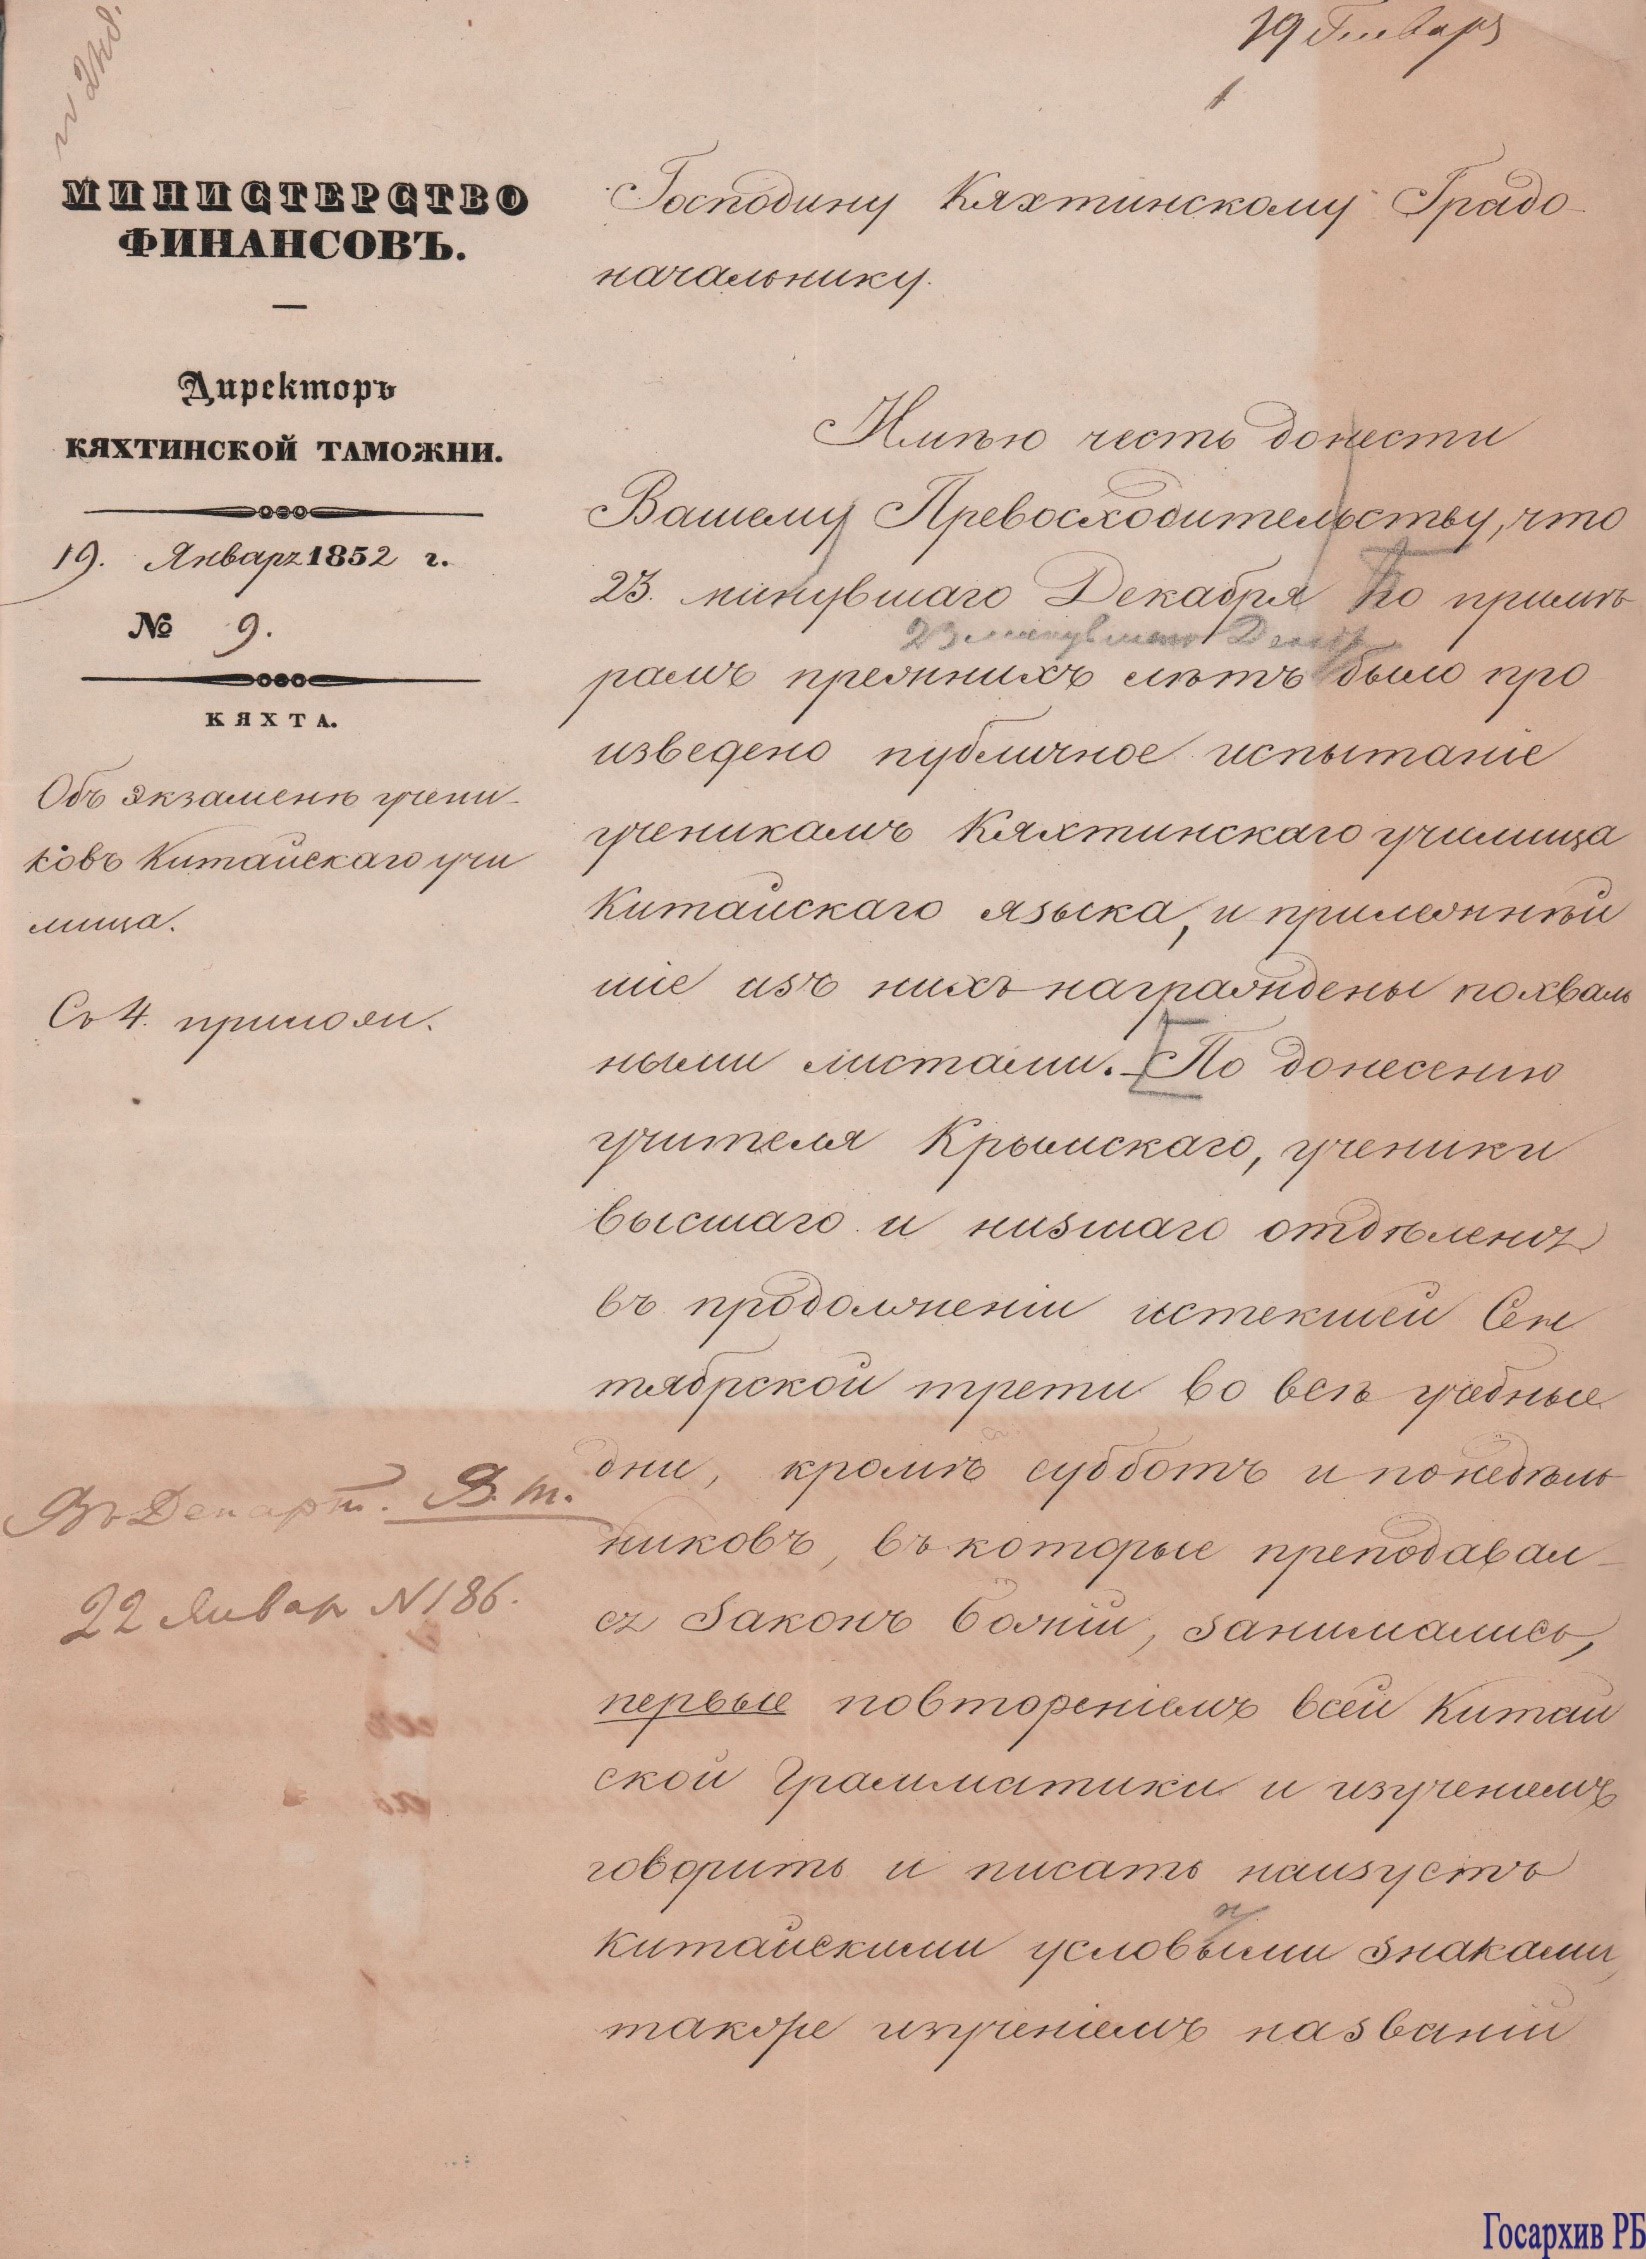 19 Января
МИНИСТЕРСТВО
ФИНАНСОВЪ.
Директоръ
КЯХТИНСКОЙ ТАМОЖНИ.
19. Января 1852 г.
№ 9.
КЯХТА.
Объ экзаменѣ учени-
ковъ Китайскаго учи
лища.
Съ 4. прилож.
Въ Департ. В. т.
22 Январ N 186.
Господину Кяхтинскому Градо-
начальнику.
Имѣю честь донести
Вашему Превосходительству, что
23. минувшаго Декабря по примѣ
23 минувшаго Декабр
рамъ прежнихъ лѣтъ было про
изведено публичное испытаніе
ученикамъ Кяхтинскаго училища
Китайскаго языка, и прилежнѣй
шіе изъ нихъ награждены похваль
ными листами. По донесенію
учителя Крымскаго, ученики
высшаго и низшаго отдѣленія
въ продолженіи истекшей Сен
тябрской трети во всѣ учебные
дни, кромѣ субботъ и понедѣль
никовъ, въ которые преподавал-
ся Законъ Божій, занимались,
первые повтореніемъ всей Китай
ской Грамматики и изученіемъ
говорить и писать наизусть
китайскими условыми знаками,
н
также изученіемъ названій
Госархив РБ